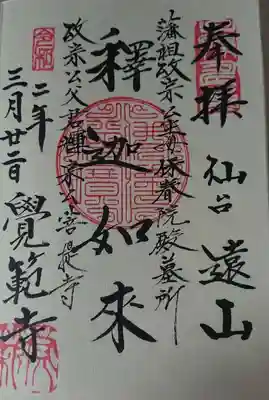 奉拝
仙台 遠山
藩祖政宗公生母保春院殿墓所
釋迦如來
政宗公父君輝宗公菩提寺
令和
二年
三月廿二日
覺範寺